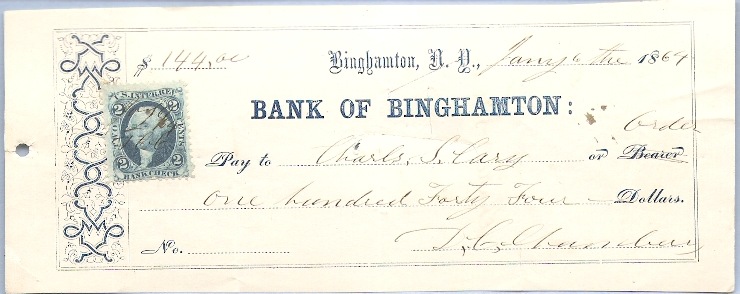 $ 144.00 Binghamton, N. Y., Jany 6 the 1864
BANK OF BINGHAMTON:
U.S. INTER. REV.
2 2
TWO CENTS
2 2
BANK CHECK
Order
Pay to Charls. S. Cary or Bearer
One hundred Forty Four Dollars.
No.